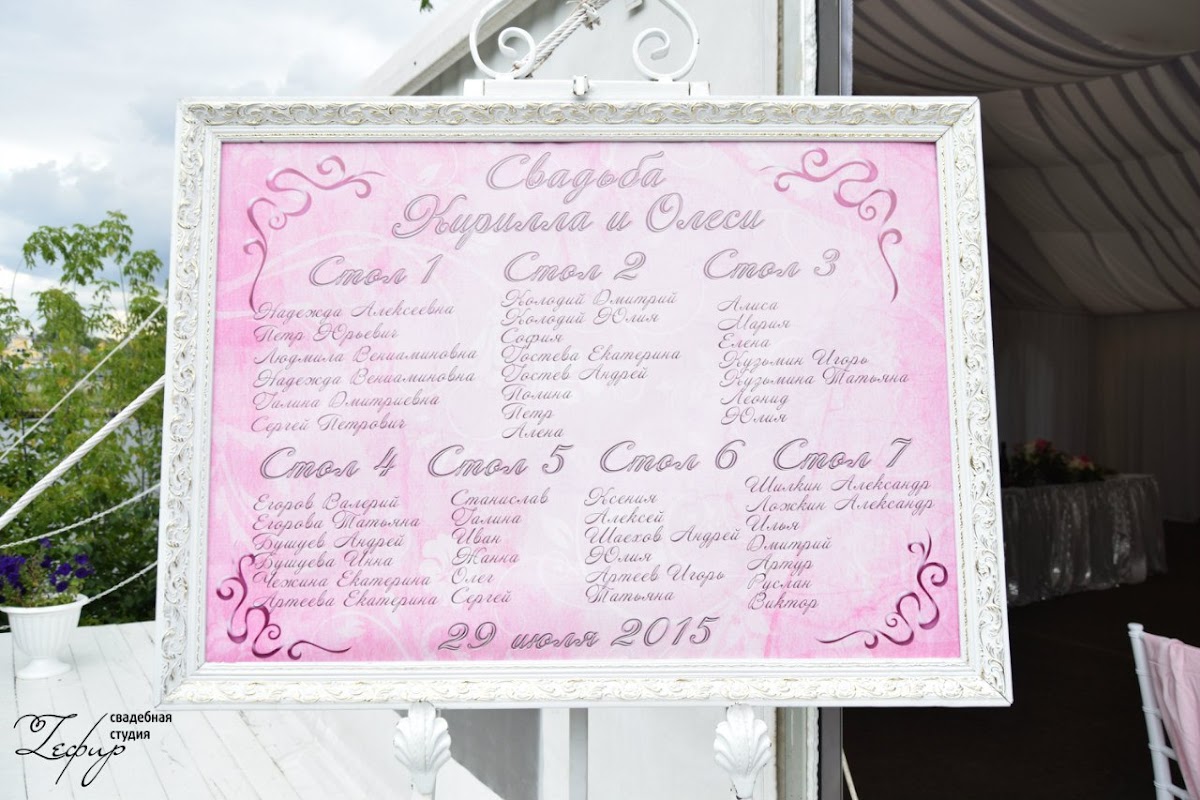 Свадьба
Кирилла и Олеси
Стол 1
Надежда Алексеевна
Петр Юрьевич
Людмила Вениаминовна
Надежда Вениаминовна
Галина Дмитриевна
Сергей Петрович
Стол 2
Колодий Дмитрий
Колодий Юлия
София
Гостева Екатерина
Гостев Андрей
Полина
Петр
Алена
Стол 3
Алиса
Мария
Елена
Кузьмин Игорь
Кузьмина Татьяна
Леонид
Юлия
Стол 4
Егоров Валерий
Егорова Татьяна
Бушуев Андрей
Бушуева Инна
Чежина Екатерина
Артеева Екатерина
Стол 5
Станислав
Галина
Иван
Жанна
Олег
Сергей
Стол 6
Ксения
Алексей
Шаехов Андрей
Юлия
Артеев Игорь
Татьяна
Стол 7
Шилкин Александр
Ложкин Александр
Илья
Дмитрий
Артур
Руслан
Виктор
29 июля 2015
Зефир
свадебная
студия